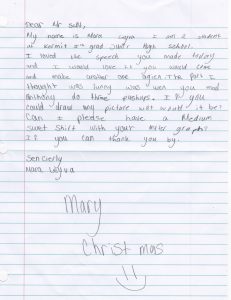 Dear Mr Sull,
My name is Mara I am a student
at Kermit 6th grad Junior High school.
I loved the speech you made today
and I would love it you would come
and make another one again. The part I
thought was funny was wen you mad
Anthony do three pushups. If you
could draw any picture wat would it be?
Can I please have a Medium
swet shirt with your auto graph?
If you can thank you by.
Sencierly
Mara
Mary
Christmas